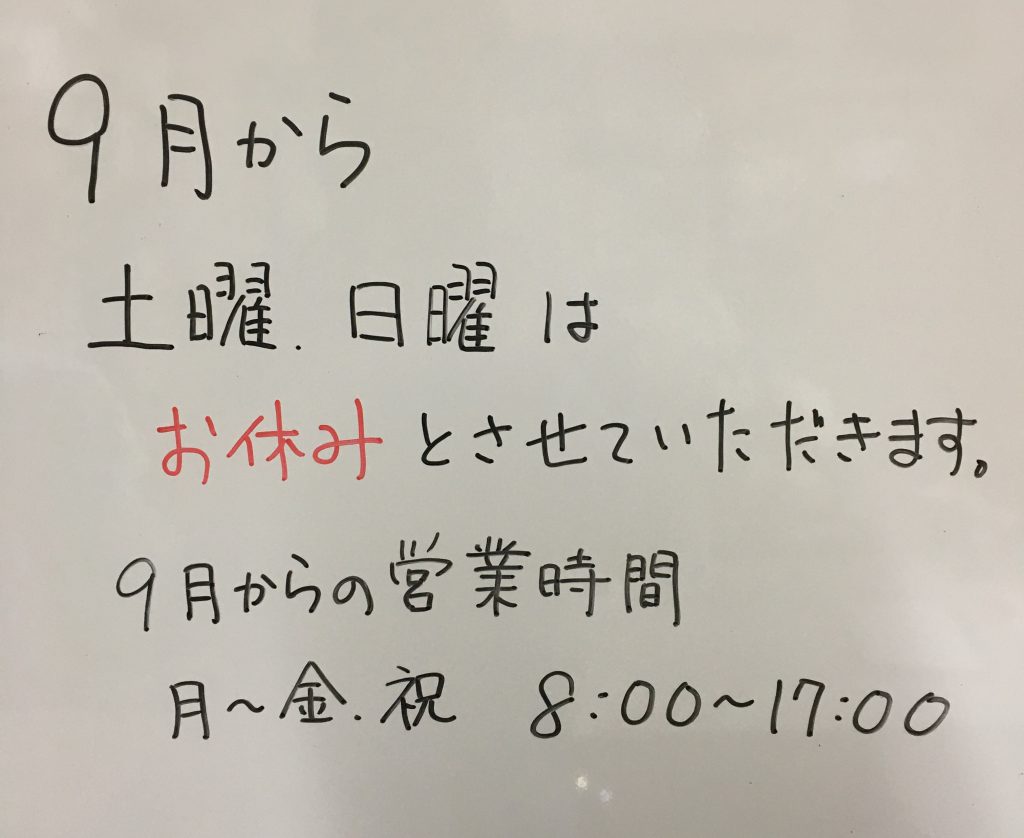 9月から
土曜.日曜は
お休みとさせていただきます。
9月からの営業時間
月～金.祝 8:00～17:00